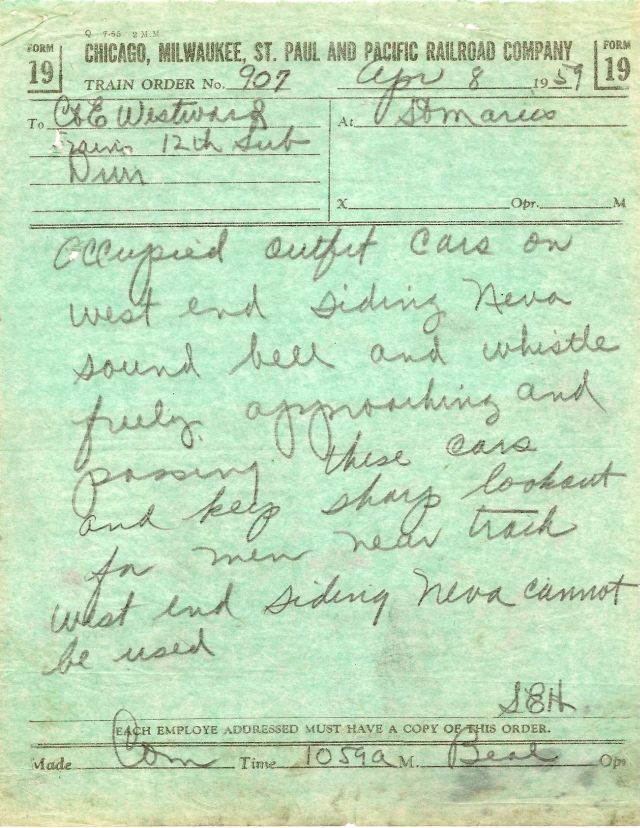 Q 7-55 2 M.M
FORM 19
CHICAGO, MILWAUKEE, ST. PAUL AND PACIFIC RAILROAD COMPANY
FORM 19
TRAIN ORDER No. 907 Apr 8 1959
To C&E Westward
At St Maries
12th Sub
X Opr. M
Occupied outfit cars on
west end siding Neva
sound bell and whistle
freely approaching and
passing these cars
and keep sharp lookout
for men near track
West end siding Neva cannot
be used
SEH
EACH EMPLOYE ADDRESSED MUST HAVE A COPY OF THIS ORDER.
Made Com Time 1059a M. Beal Opr